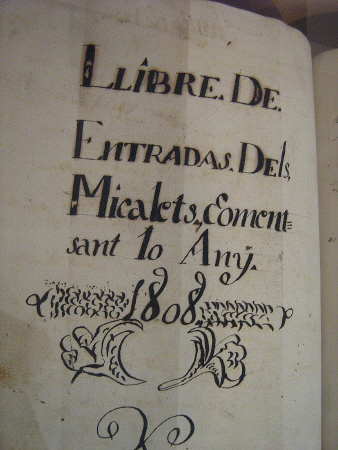 LLIBRE. DE.
ENTRADAS. DELs,
Micalets, Coment=
sant lo Any.
1808.